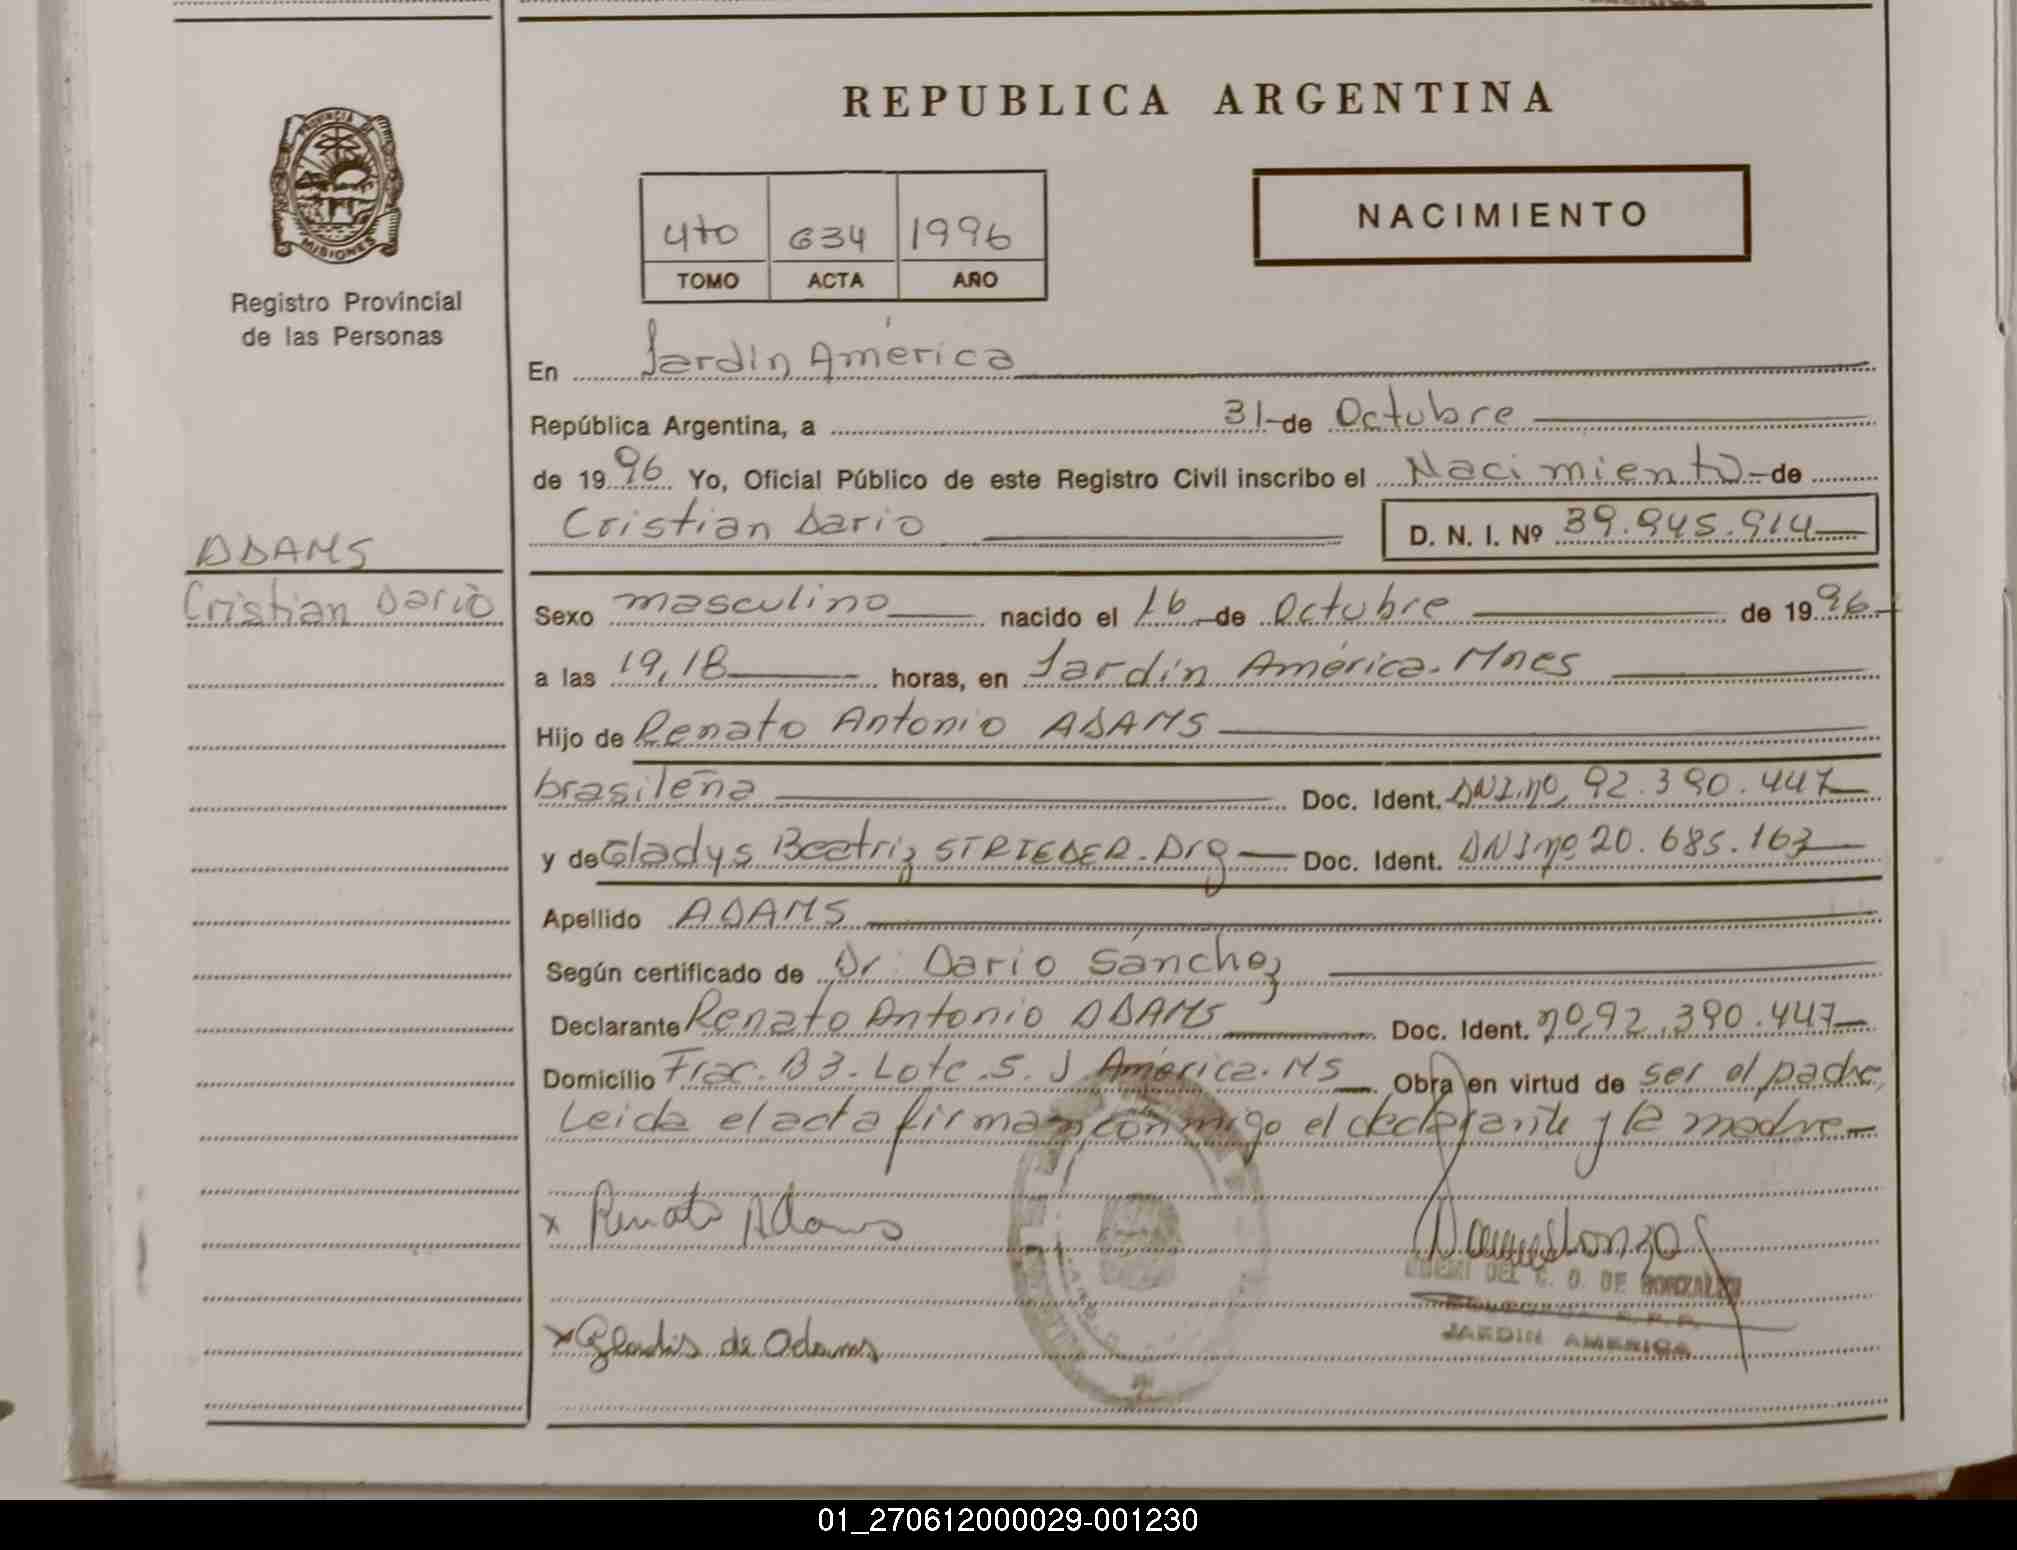 REPUBLICA ARGENTINA
PROVINCIA DE
MISIONES
Registro Provincial
de las Personas
4to 634 1996
TOMO ACTA AÑO
NACIMIENTO
En Jardín América
República Argentina, a 31 de Octubre
de 1996 Yo, Oficial Público de este Registro Civil inscribo el Nacimiento de
Cristian Dario D. N. I. Nº 39.945.914
ADAMS
Cristian Dario
Sexo masculino nacido el 16 de Octubre de 1996
a las 19,18 horas, en Jardín América. Mnes
Hijo de Renato Antonio ADAMS
brasileña Doc. Ident. DNI.nº 92.390.447
y de Gladys Beatriz STRIEDER. Arg Doc. Ident. DNI nº 20.685.163
Apellido ADAMS
Según certificado de Dr. Dario Sánchez
Declarante Renato Antonio ADAMS Doc. Ident. nº 92.390.447
Domicilio Frac. B3. Lote. 5. J América. MS Obra en virtud de ser el padre,
Leida el acta firman conmigo el declarante y la madre
x Renato Adams
DEL C. D. DE GONZALEZ
JARDIN AMERICA
x Gladis de Adams
01_270612000029-001230